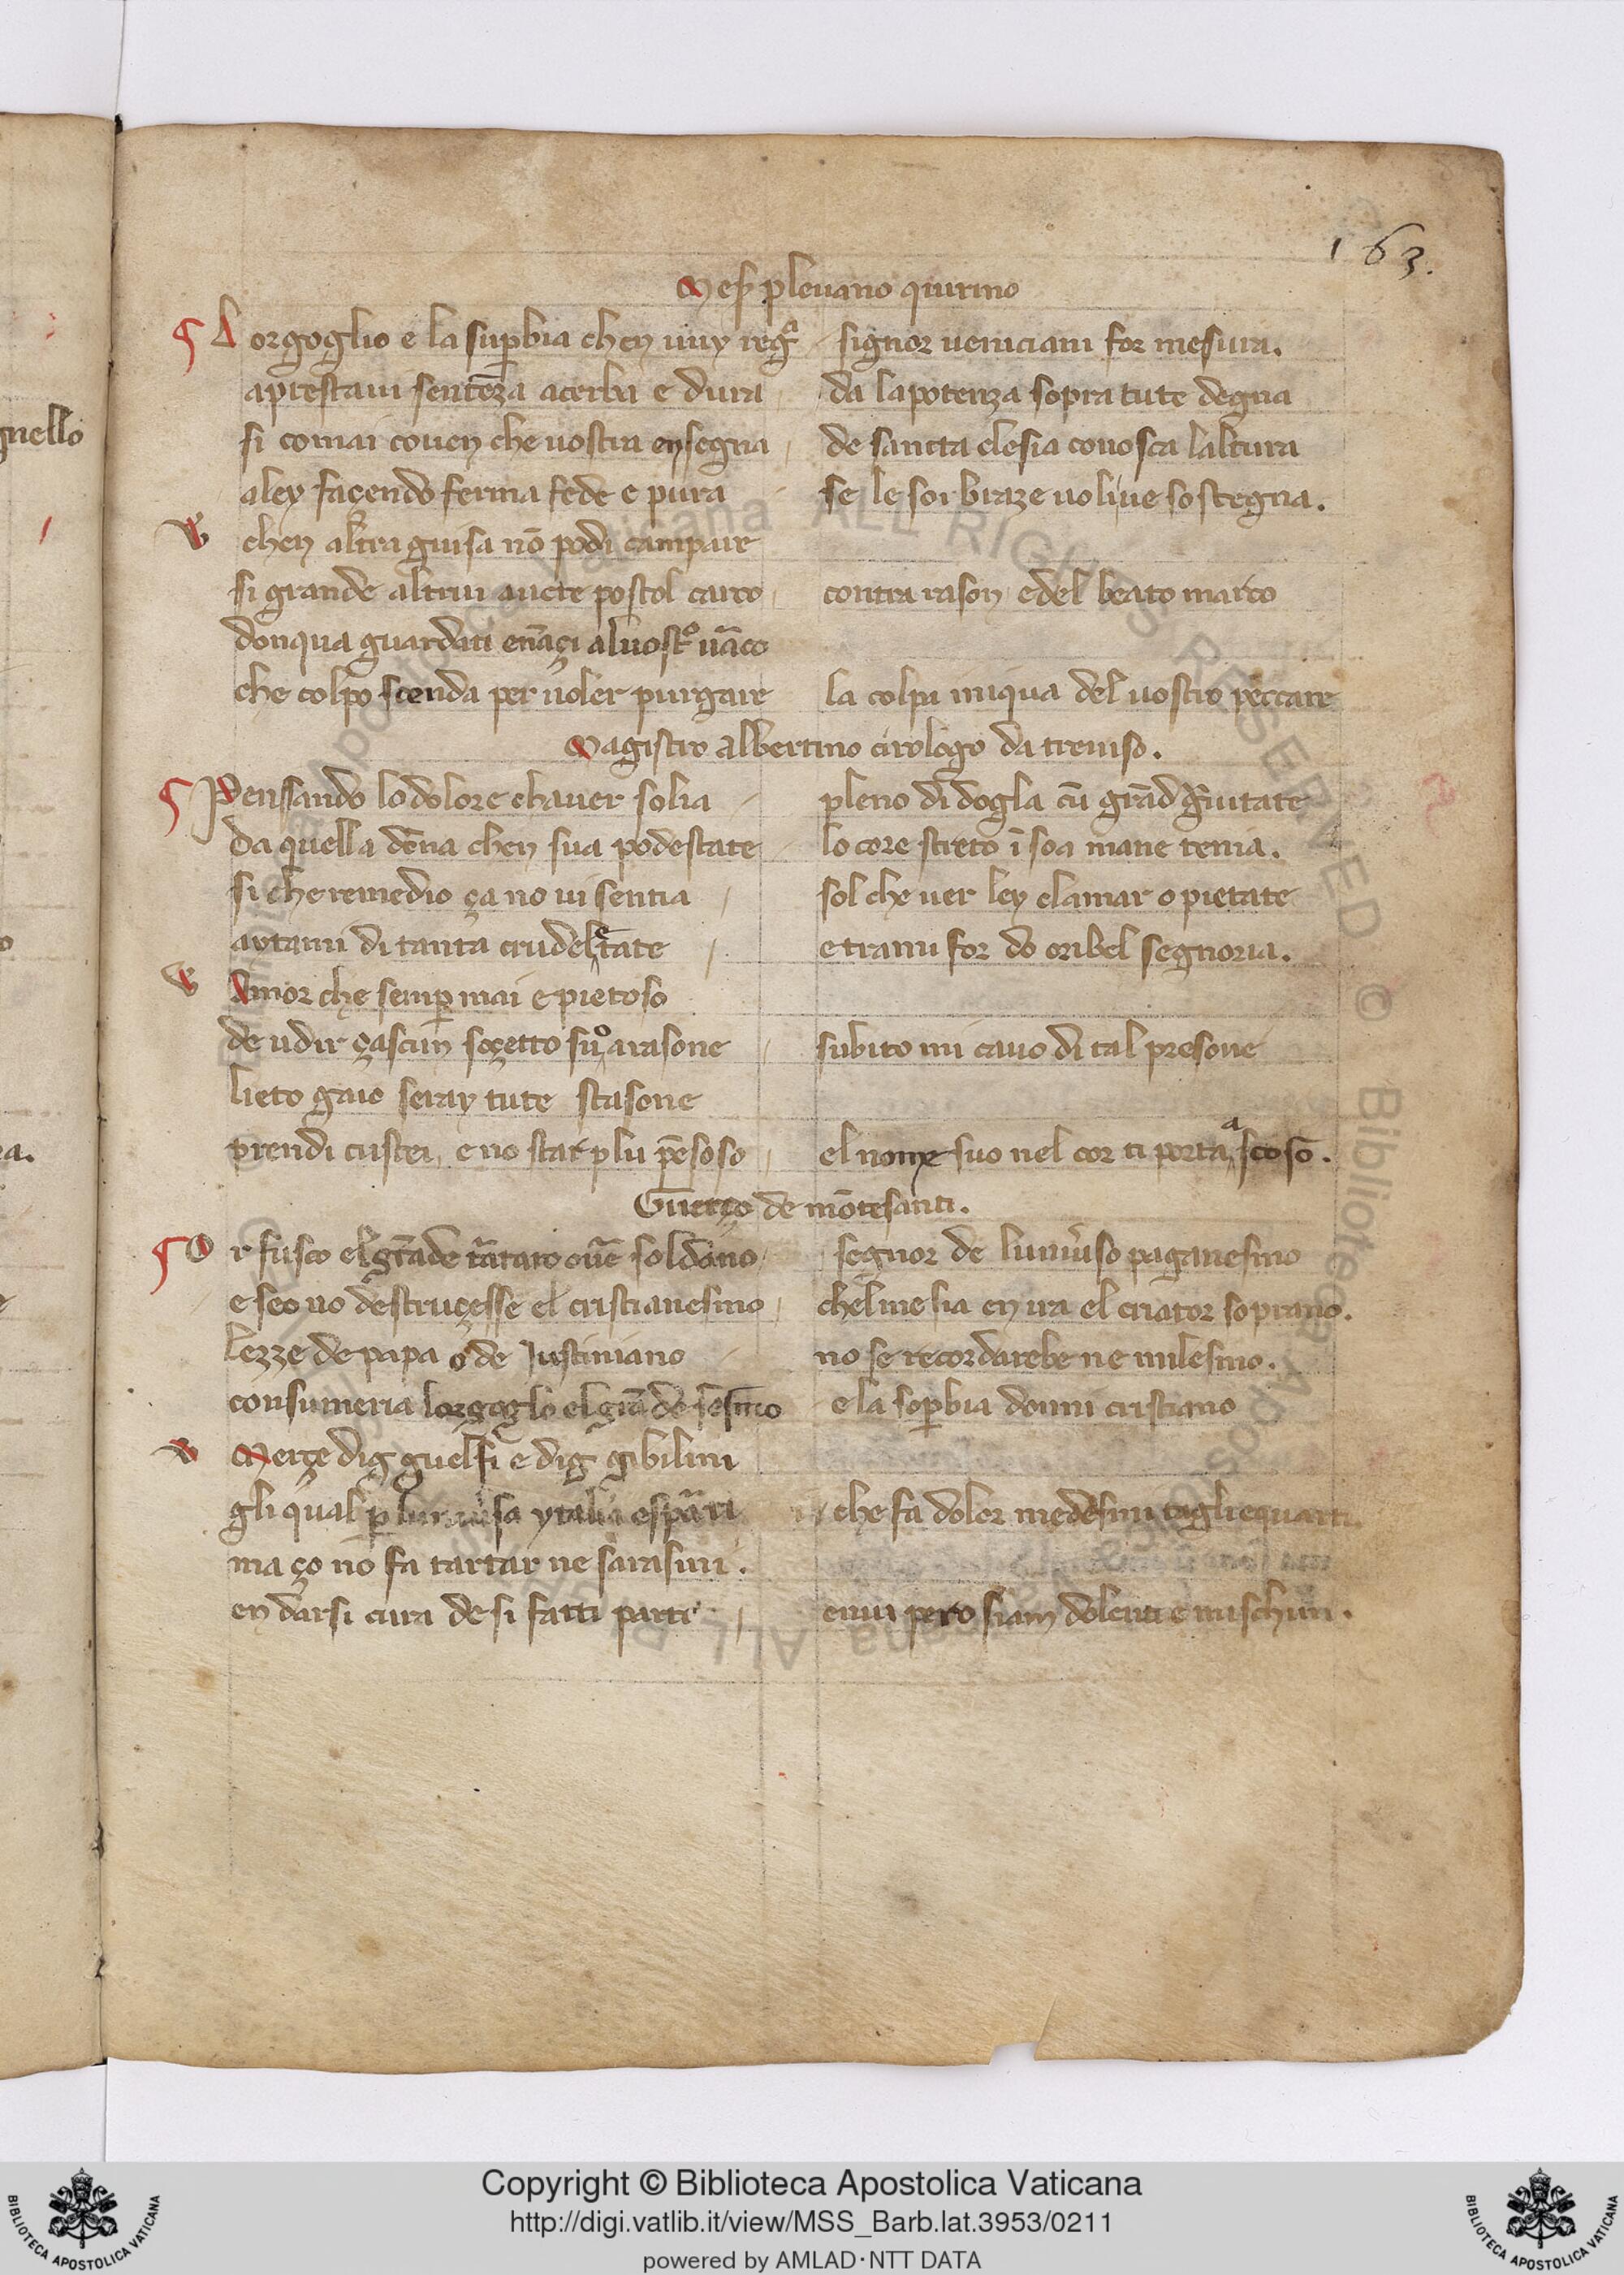 163.
Mes plevano quirino
L orgoglio e la supbia chen vuy regna signor veniciani for mesura.
aprestavi sentēza acerba e dura da la potenza sopra tute degna
si comai coven che vostra ensegna de sancta clesia conosca laltura
a ley façendo ferma fede e pura se le sor braze vol
chen altra guisa nō podi campare
si grande altrui avete postol carco contra rason edel beato marco
donqua guardati enāçi al vostro vāco
che colpo scenda per voler purgare la colpa iniqua del vostro peccare
Magistro albertino cirologo da treviso.
Pensando lo dolore chaver solia pleno di dogla cū grād gravitate
da quella dōna chen sua podestate lo core streto ī soa mane tenia.
si che remedio ça no vi sentia sol che ver ley clamar o pietate
aytami di tanta crudeltate e trami for do oribel segnoria.
Amor che semp mai e pietoso
de udir çascun soçetto suo a rasone subito mi cavo di tal presone
lieto gaio seray tute stasone
prendi custei, e no star plu pēsoso el nome suo nel cor ti porta ascosō.
Guerço de mōtesanti.
O r fusco el grāde tātaro ove soldano segnor de luniverso paganesmo
e seo no destruçesse el cristianesmo chel me sia en ira el criator soprano.
lezze de papa o de Justiniano no se recordarebe ne milesmo.
consumeria lorgoglo el grāde e la sopbia donni cristiano
Merçe dig guelfi e dig gibilini
gli qual p ytalia che fa dolor medesmi
ma ço nō fa tartar ne sarasini.
en darsi cura de si fatti parti enui pero siam dolenti e mischini.
gnello
ea.
Copyright © Biblioteca Apostolica Vaticana
http://digi.vatlib.it/view/MSS_Barb.lat.3953/0211
powered by AMLAD·NTT DATA
BIBLIOTECA APOSTOLICA VATICANA
BIBLIOTECA APOSTOLICA VATICANA